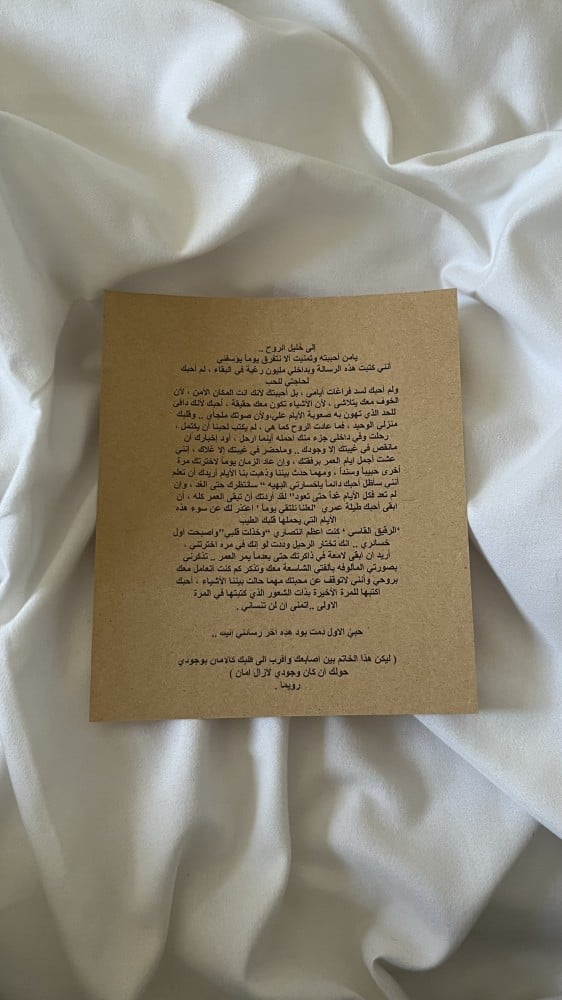 إلى خليل الروح ..
يامن أحببته وتمنيت ألا نتفرق يوماً يؤسفني
أنني كتبت هذه الرسالة وبداخلي مليون رغبة في البقاء ، لم أحبك
لحاجتي للحب
ولم أحبك لسد فراغات أيامي ، بل أحببتك لأنك انت المكان الآمن ، لأن
الخوف معك يتلاشى ، لأن الأشياء تكون معك حقيقة ، أحبك لأنك دافئ
للحد الذي تهون به صعوبة الأيام علي،ولأن صوتك ملجأي .. وقلبك
منزلي الوحيد ، فما عادت الروح كما هي ، لم يكتب لحبنا أن يكتمل ،
رحلت وفي داخلي جزء منك احمله أينما ارحل ، أود إخبارك ان
مانقص في غيبتك إلا وجودك .. وماحضر في غيبتك إلا غلاك ، إنني
عشت أجمل ايام العمر برفقتك ، وإن عاد الزمان يوماً لاخترتك مرة
أخرى حبيباً وسنداً ، ومهما حدث بيننا وذهبت بنا الأيام أريدك أن تعلم
أنني سأظل أحبك دائماً ياخسارتي البهيه " سأنتظرك حتى الغد ، وإن
لم تعد فكل الأيام غداً حتى تعود" لقد أردتك أن تبقى العمر كله ، أن
ابقى أحبك طيلة عمري "لعلنا نلتقي يوماً ' اعتذر لك عن سوء هذه
الأيام التي يحملها قلبك الطيب
'الرفيق القاسي ' كنت اعظم انتصاري "وخذلت قلبي"واصبحت اول
خسائري .. انك تختار الرحيل وددت لو انك في مره اخترتني ،
أريد ان ابقى لامعة في ذاكرتك حتى بعدما يمر العمر .. تذكرني
بصورتي المألوفه بألفتي الشاسعة معك وتذكر كم كنت أتعامل معك
بروحي وأنني لاتوقف عن محبتك مهما حالت بيننا الأشياء ، أحبك
اكتبها للمرة الأخيرة بذات الشعور الذي كتبتها في المرة
الاولى ..اتمنى ان لن تنساني .
حبيّ الاول دمت بود هذه آخر رسائلي إليك ..
( ليكن هذا الخاتم بين أصابعك واقرب الى قلبك كالامان بوجودي
حولك ان كان وجودي لازال امان )
رويما .